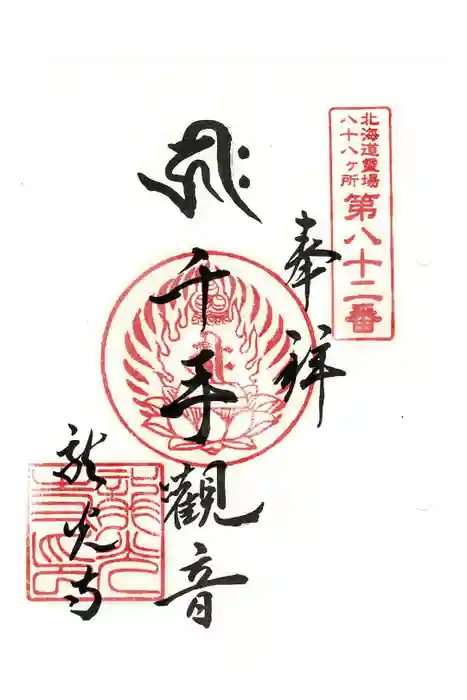 北海道霊場
八十八ヶ所
第八十二番
奉拝
千手觀音
龍光寺